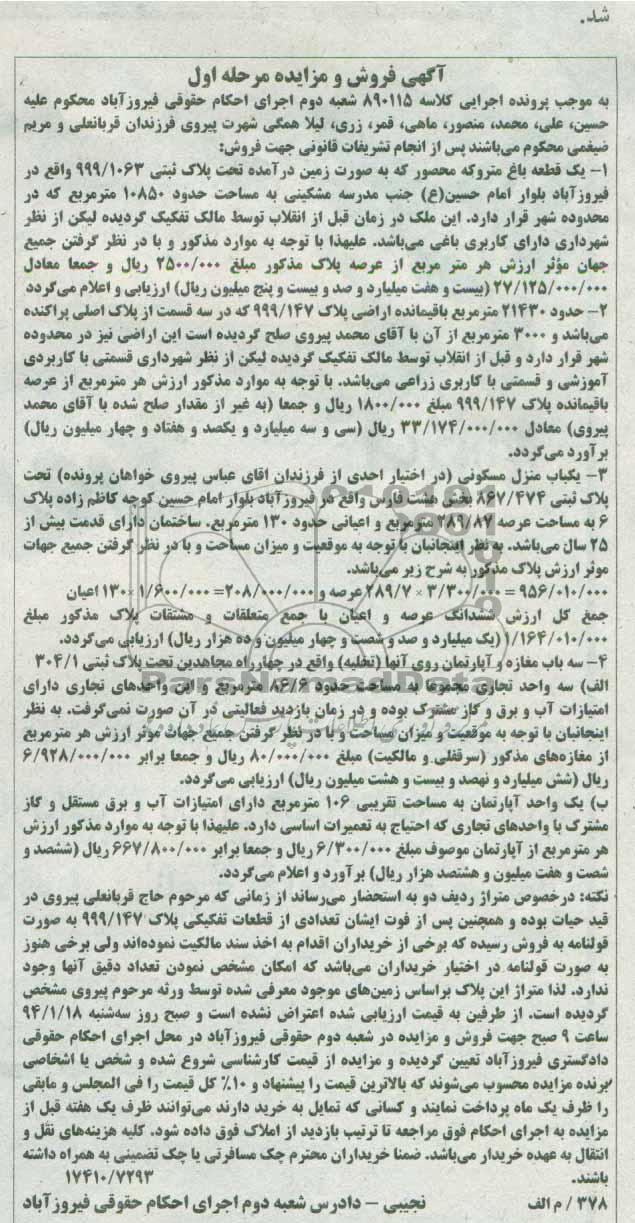 شد.
آگهی فروش و مزایده مرحله اول
به موجب پرونده اجرایی کلاسه ۸۹۰۱۱۵ شعبه دوم اجرای احکام حقوقی فیروزآباد محکوم علیه
حسین، علی، محمد، منصور، ماهی، قمر، زری، لیلا همگی شهرت پیروی فرزندان قربانعلی و مریم
ضیغمی محکوم می‌باشند پس از انجام تشریفات قانونی جهت فروش:
۱- یک قطعه باغ متروکه محصور که به صورت زمین درآمده تحت پلاک ثبتی ۹۹۹/۱۰۶۳ واقع در
فیروزآباد بلوار امام حسین(ع) جنب مدرسه مشکینی به مساحت حدود ۱۰۸۵۰ مترمربع که در
محدوده شهر قرار دارد. این ملک در زمان قبل از انقلاب توسط مالک تفکیک گردیده لیکن از نظر
شهرداری دارای کاربری باغی می‌باشد. علیهذا با توجه به موارد مذکور و با در نظر گرفتن جمیع
جهان مؤثر ارزش هر متر مربع از عرصه پلاک مذکور مبلغ ۲۵۰۰/۰۰۰ ریال و جمعا معادل
۲۷/۱۲۵/۰۰۰/۰۰۰ (بیست و هفت میلیارد و صد و بیست و پنج میلیون ریال) ارزیابی و اعلام می‌گردد
۲- حدود ۲۱۴۳۰ مترمربع باقیمانده اراضی پلاک ۹۹۹/۱۴۷ که در سه قسمت از پلاک اصلی پراکنده
می‌باشد و ۳۰۰۰ مترمربع از آن با آقای محمد پیروی صلح گردیده است این اراضی نیز در محدوده
شهر قرار دارد و قبل از انقلاب توسط مالک تفکیک گردیده لیکن از نظر شهرداری قسمتی با کاربردی
آموزشی و قسمتی با کاربری زراعی می‌باشد. با توجه به موارد مذکور ارزش هر مترمربع از عرصه
باقیمانده پلاک ۹۹۹/۱۴۷ مبلغ ۱۸۰۰/۰۰۰ ریال و جمعا (به غیر از مقدار صلح شده با آقای محمد
پیروی) معادل ۳۳/۱۷۴/۰۰۰/۰۰۰ ریال (سی و سه میلیارد و یکصد و هفتاد و چهار میلیون ریال)
برآورد می‌گردد.
۳- یکباب منزل مسکونی (در اختیار احدی از فرزندان اقای عباس پیروی خواهان پرونده) تحت
پلاک ثبتی ۸۶۷/۴۷۴ بخش هشت فارس واقع در فیروزآباد بلوار امام حسین کوچه کاظم زاده پلاک
۶ به مساحت عرصه ۲۸۹/۸۷ مترمربع و اعیانی حدود ۱۳۰ مترمربع. ساختمان دارای قدمت بیش از
۲۵ سال می‌باشد. به نظر اینجانبان با توجه به موقعیت و میزان مساحت و با در نظر گرفتن جمیع جهات
موثر ارزش پلاک مذکور به شرح زیر می‌باشد.
۹۵۶/۰۱۰/۰۰۰ = ۳/۳۰۰/۰۰۰ × ۲۸۹/۷ عرصه و ۲۰۸/۰۰۰/۰۰۰ = ۱/۶۰۰/۰۰۰ × ۱۳۰ اعیان
جمع کل ارزش ششدانگ عرصه و اعیان با جمع متعلقات و مشتقات پلاک مذکور مبلغ
۱/۱۶۴/۰۱۰/۰۰۰ (یک میلیارد و صد و شصت و چهار میلیون و ده هزار ریال) ارزیابی می‌گردد.
۴- سه باب مغازه و آپارتمان روی آنها (تخلیه) واقع در چهارراه مجاهدین تحت پلاک ثبتی ۳۰۴/۱
الف) سه واحد تجاری مجموعا به مساحت حدود ۸۶/۶ مترمربع و این واحدهای تجاری دارای
امتیازات آب و برق و گاز مشترک بوده و در زمان بازدید فعالیتی در آن صورت نمی‌گرفت. به نظر
اینجانبان با توجه به موقعیت و میزان مساحت و با در نظر گرفتن جمیع جهات موثر ارزش هر مترمربع
از مغازه‌های مذکور (سرقفلی و مالکیت) مبلغ ۸۰/۰۰۰/۰۰۰ ریال و جمعا برابر ۶/۹۲۸/۰۰۰/۰۰۰
ریال (شش میلیارد و نهصد و بیست و هشت میلیون ریال) ارزیابی می‌گردد.
ب) یک واحد آپارتمان به مساحت تقریبی ۱۰۶ مترمربع دارای امتیازات آب و برق مستقل و گاز
مشترک با واحدهای تجاری که احتیاج به تعمیرات اساسی دارد. علیهذا با توجه به موارد مذکور ارزش
هر مترمربع از آپارتمان موصوف مبلغ ۶/۳۰۰/۰۰۰ ریال و جمعا برابر ۶۶۷/۸۰۰/۰۰۰ ریال (ششصد و
شصت و هفت میلیون و هشتصد هزار ریال) برآورد و اعلام می‌گردد.
نکته: درخصوص متراژ ردیف دو به استحضار می‌رساند از زمانی که مرحوم حاج قربانعلی پیروی در
قید حیات بوده و همچنین پس از فوت ایشان تعدادی از قطعات تفکیکی پلاک ۹۹۹/۱۴۷ به صورت
قولنامه به فروش رسیده که برخی از خریداران اقدام به اخذ سند مالکیت نموده‌اند ولی برخی هنوز
به صورت قولنامه در اختیار خریداران می‌باشد که امکان مشخص نمودن تعداد دقیق آنها وجود
ندارد. لذا متراژ این پلاک براساس زمین‌های موجود معرفی شده توسط ورثه مرحوم پیروی مشخص
گردیده است. از طرفین به قیمت ارزیابی شده اعتراض نشده است و صبح روز سه‌شنبه ۹۴/۱/۱۸
ساعت ۹ صبح جهت فروش و مزایده در شعبه دوم حقوقی فیروزآباد در محل اجرای احکام حقوقی
دادگستری فیروزآباد تعیین گردیده و مزایده از قیمت کارشناسی شروع شده و شخص یا اشخاصی
برنده مزایده محسوب می‌شوند که بالاترین قیمت را پیشنهاد و ۱۰٪ کل قیمت را فی المجلس و مابقی
را ظرف یک ماه پرداخت نمایند و کسانی که تمایل به خرید دارند می‌توانند ظرف یک هفته قبل از
مزایده به اجرای احکام فوق مراجعه تا ترتیب بازدید از املاک فوق داده شود. کلیه هزینه‌های نقل و
انتقال به عهده خریدار می‌باشد. ضمنا خریداران محترم چک مسافرتی یا چک تضمینی به همراه داشته
باشند.
۱۷۴۱۰/۷۲۹۳
۳۷۸ / م الف نجیبی – دادرس شعبه دوم اجرای احکام حقوقی فیروزآباد
ParsNamadData